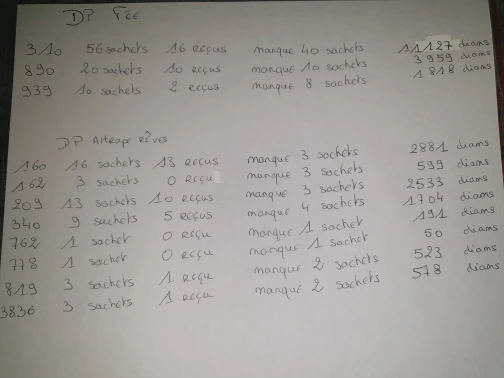 DP Fée
310 56 sachets 16 reçus manque 40 sachets 11127 diams
890 20 sachets 10 reçus manque 10 sachets 3959 diams
939 10 sachets 2 reçus manque 8 sachets 1818 diams
DP Attrape Rêves
160 16 sachets 13 reçus manque 3 sachets 2881 diams
162 3 sachets 0 reçu manque 3 sachets 599 diams
209 13 sachets 10 reçus manque 3 sachets 2533 diams
340 9 sachets 5 reçus manque 4 sachets 1704 diams
762 1 sachet 0 reçu manque 1 sachet 191 diams
778 1 sachet 0 reçu manque 1 sachet 50 diams
819 3 sachets 1 reçu manque 2 sachets 523 diams
3836 3 sachets 1 reçu manque 2 sachets 578 diams